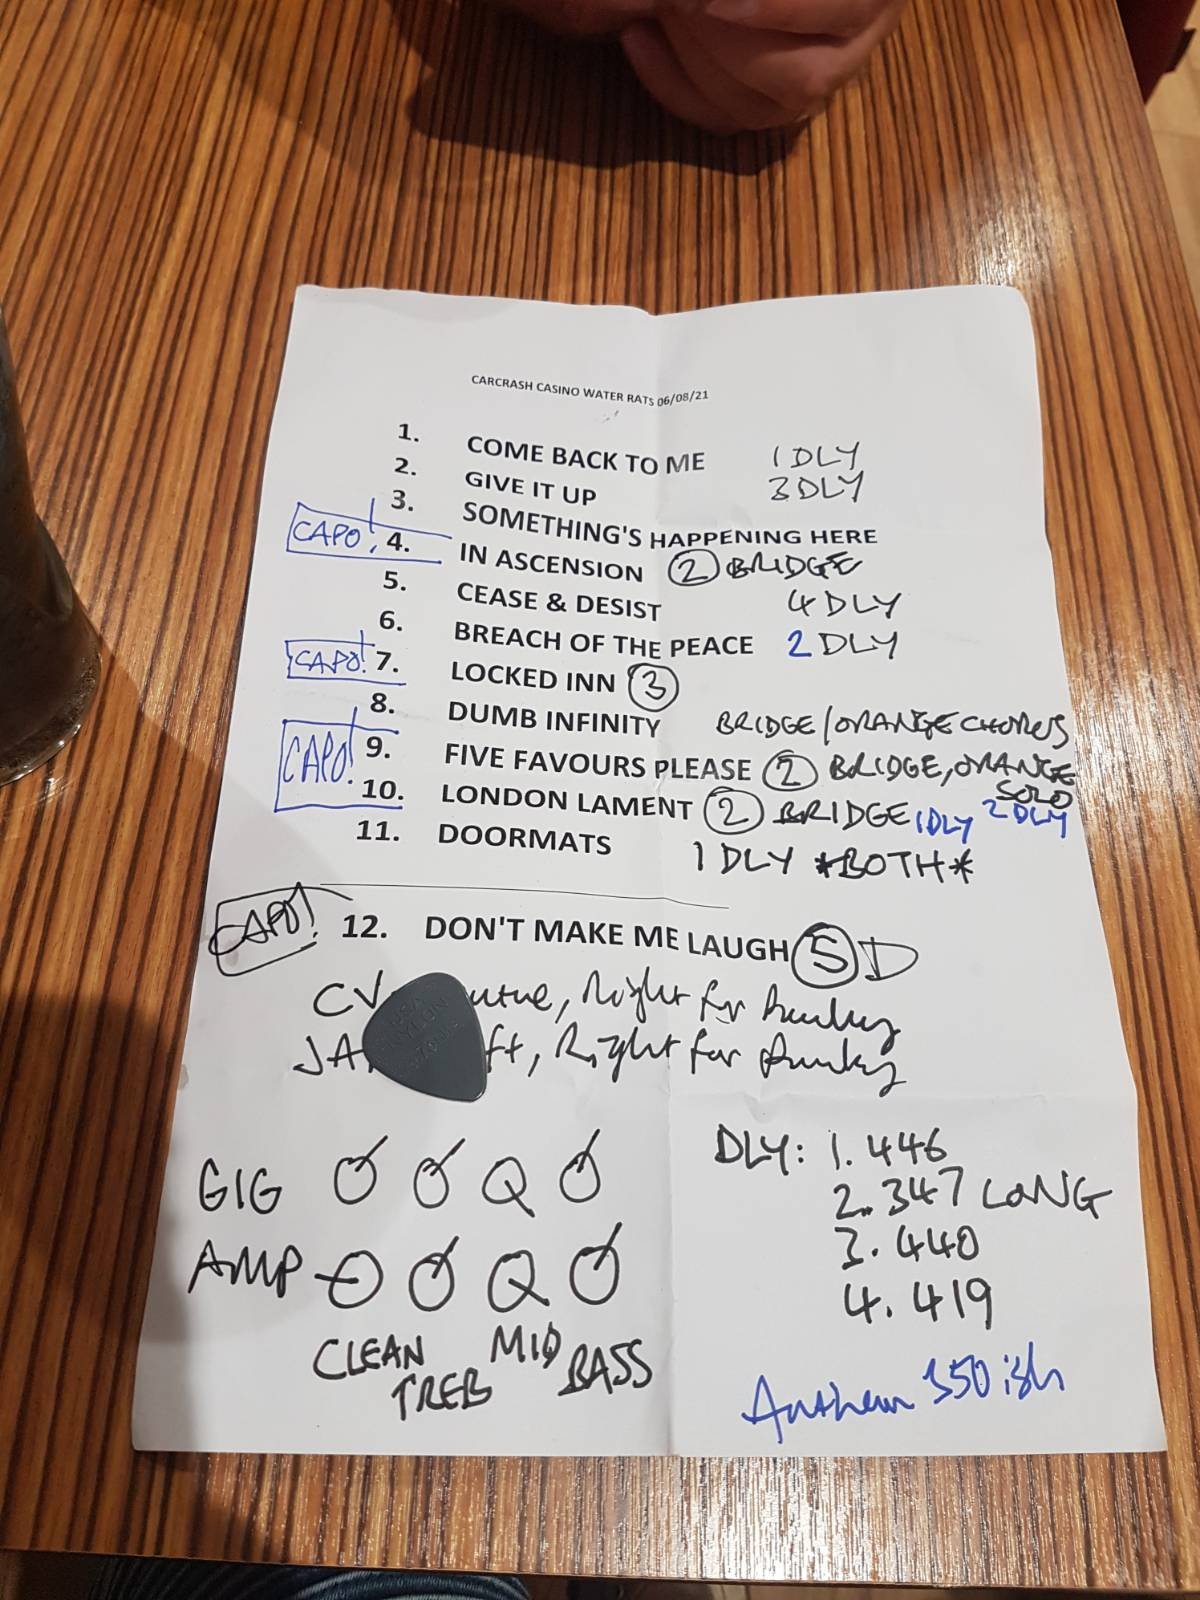 CARCRASH CASINO WATER RATS 06/08/21
1. COME BACK TO ME 1 DLY
2. GIVE IT UP 3 DLY
3. SOMETHING'S HAPPENING HERE
CAPO! 4. IN ASCENSION 2 BRIDGE
5. CEASE & DESIST 4 DLY
6. BREACH OF THE PEACE 2 DLY
CAPO! 7. LOCKED INN 3
8. DUMB INFINITY BRIDGE/ORANGE CHORUS
CAPO! 9. FIVE FAVOURS PLEASE 2 BRIDGE, ORANGE SOLO
10. LONDON LAMENT 2 BRIDGE 1DLY 2 DLY
11. DOORMATS 1 DLY *BOTH*
CAPO! 12. DON'T MAKE ME LAUGH 5 D
CV, Right for
JA, Right for
USA
NYLON
GIG
AMP
CLEAN TREB MID BASS
DLY: 1. 446
2. 347 LONG
3. 440
4. 419
Anthem 350 ish